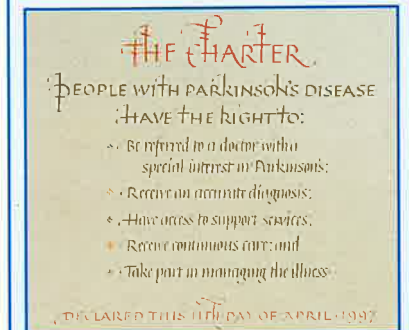 THE CHARTER
PEOPLE WITH PARKINSON'S DISEASE
HAVE THE RIGHT TO:
• Be referred to a doctor with a
special interest in Parkinson's;
• Receive an accurate diagnosis;
• Have access to support services;
• Receive continuous care; and
• Take part in managing the illness
DECLARED THIS 11TH DAY OF APRIL 1997